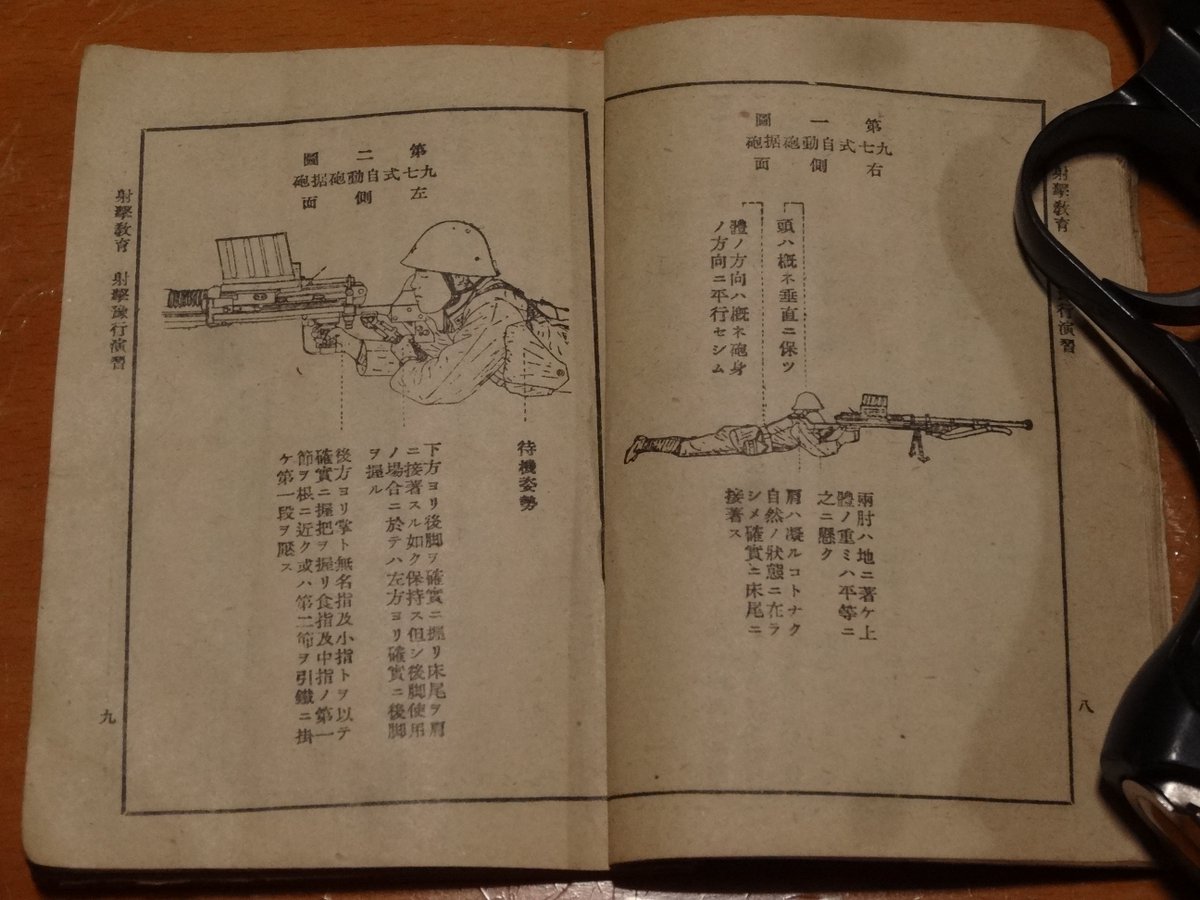 第一圖
九七式自動砲据砲
右側面
頭ハ概ネ垂直ニ保ツ
體ノ方向ハ概ネ砲身
ノ方向ニ平行セシム
兩肘ハ地ニ著ケ上
體ノ重ミハ平等ニ
之ニ懸ク
肩ハ凝ルコトナク
自然ノ狀態ニ在ラ
シメ確實ニ床尾ニ
接著ス
射擊教育
行演習
八
第二圖
九七式自動砲据砲
左側面
待機姿勢
下方ヨリ後脚ヲ確實ニ握リ床尾ヲ肩
ニ接著スル如ク保持ス但シ後脚使用
ノ場合ニ於テハ左方ヨリ確實ニ後脚
ヲ握ル
後方ヨリ掌ト無名指及小指トヲ以テ
確實ニ握把ヲ握リ食指及中指ノ第一
節ヲ根ニ近ク或ハ第二節ヲ引鐵ニ掛
ケ第一段ヲ壓ス
射擊教育 射擊豫行演習
九